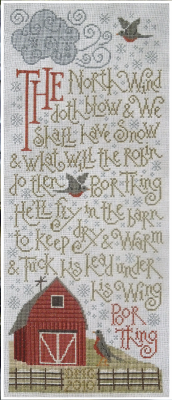 THE North Wind
doth blow & We
shall have Snow
& what will the robin
do then Poor Thing
He'll fly in the barn
to keep dry & Warm
& Tuck his head under
his Wing
Poor
Thing
2010